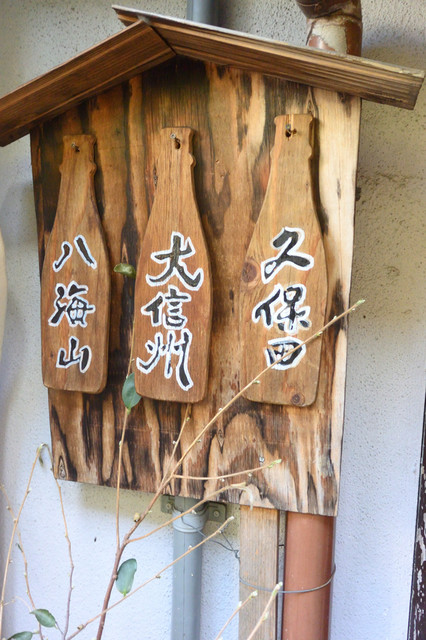 久保田
大信州
八海山